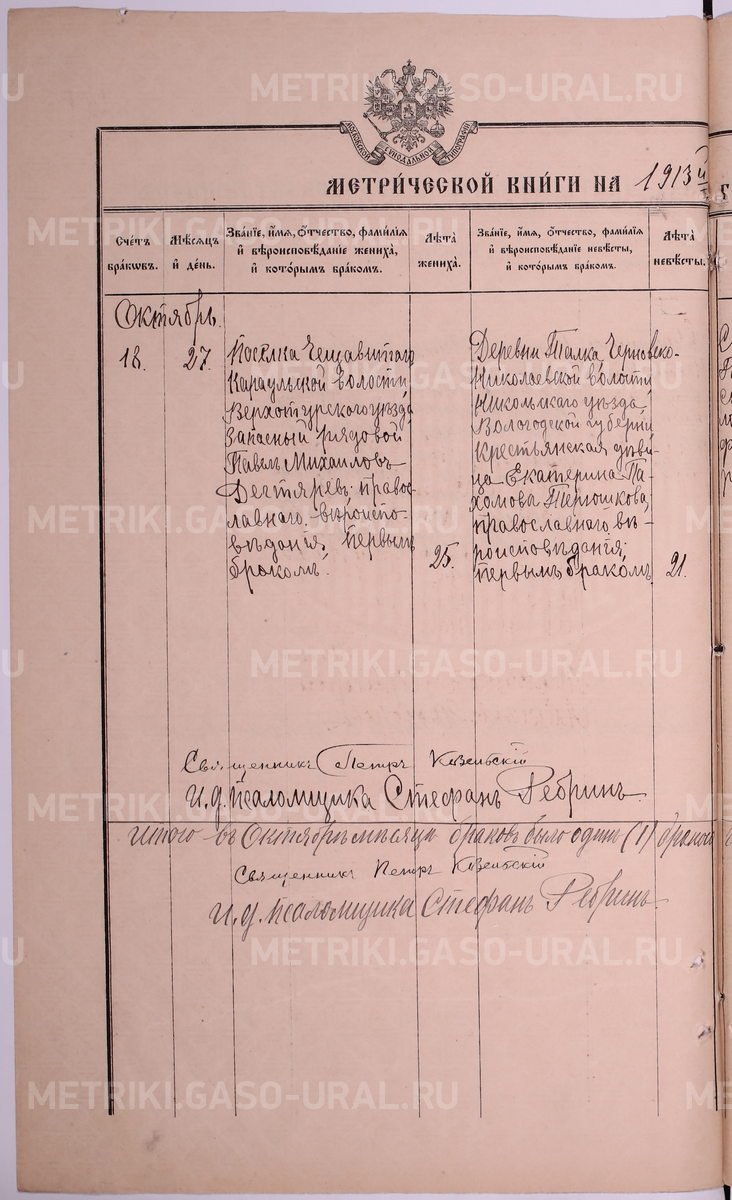 МОСКОВСКОЙ СѴНОДАЛЬНОЙ ТИПОГРАФІИ
МЕТРИ́ЧЕСКОЙ КНИ́ГИ НА 1913й
Сче́тъ бра́кωвъ.
Мѣ́сяцъ и҆ де́нь.
Зва́нїе, и҆́мя, ѻ҆́тчество, фами́лїя и҆ вѣроисповѣ́данїе жениха̀, и҆ кото́рымъ бра́комъ.
Лѣта̀ жениха̀.
Зва́нїе, и҆́мя, ѻ҆́тчество, фами́лїя и҆ вѣроисповѣ́данїе невѣ́сты, и҆ кото́рымъ бра́комъ.
Лѣта̀ невѣ́сты.
Октябрь.
18.
27.
Поселка
Караульской волости,
Верхотурского уѣзда
запасный рядовой
Павелъ Михаиловъ
Дегтяревъ, правос-
лавнаго вѣроиспо-
вѣданія, первымъ
бракомъ.
25.
Деревни Талка, Черновско-
Николаевской волости,
Никольскаго уѣзда,
Вологодской губерніи
крестьянская дѣви-
ца Екатерина Па-
хомова Терюшкова,
православнаго вѣ-
роисповѣданія,
первымъ бракомъ.
21.
Священникъ Петръ
И.д. Псаломщика Стефанъ Ребринъ.
Итого въ Октябрѣ мѣсяцѣ браковъ было одинъ (1) бракъ
Священникъ Петръ
И.д. Псаломщика Стефанъ Ребринъ.
METRIKI.GASO-URAL.RU